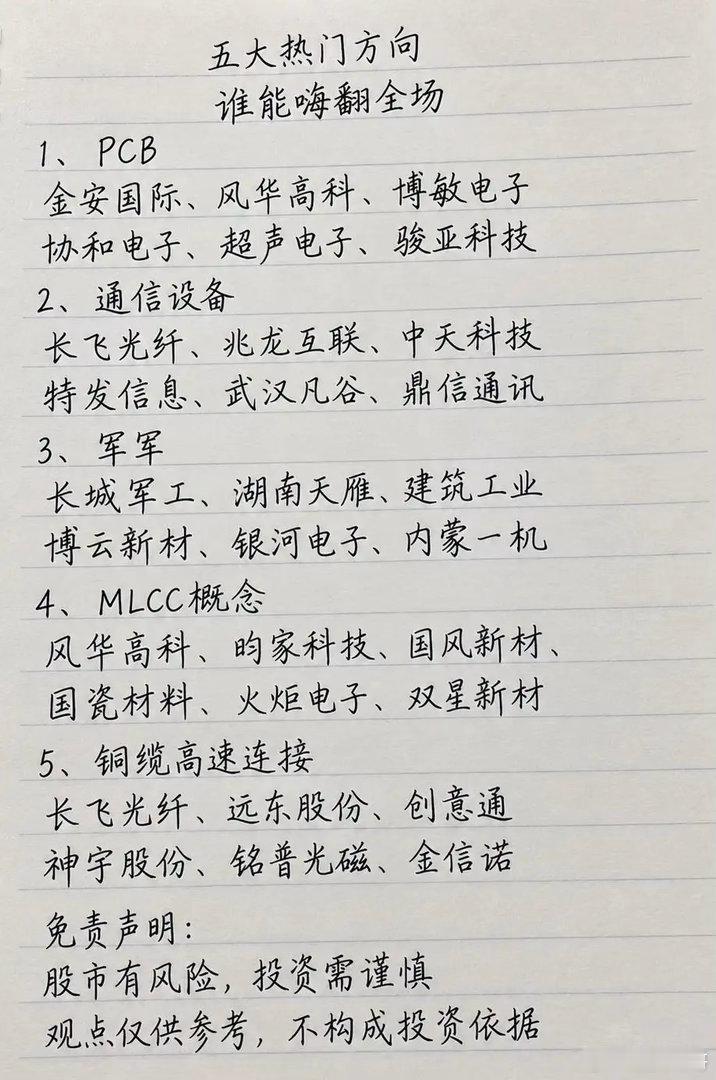 五大热门方向
谁能嗨翻全场
1、PCB
金安国际、风华高科、博敏电子
协和电子、超声电子、骏亚科技
2、通信设备
长飞光纤、兆龙互联、中天科技
特发信息、武汉凡谷、鼎信通讯
3、军军
长城军工、湖南天雁、建筑工业
博云新材、银河电子、内蒙一机
4、MLCC概念
风华高科、昀家科技、国风新材、
国瓷材料、火炬电子、双星新材
5、铜缆高速连接
长飞光纤、远东股份、创意通
神宇股份、铭普光磁、金信诺
免责声明：
股市有风险，投资需谨慎
观点仅供参考，不构成投资依据